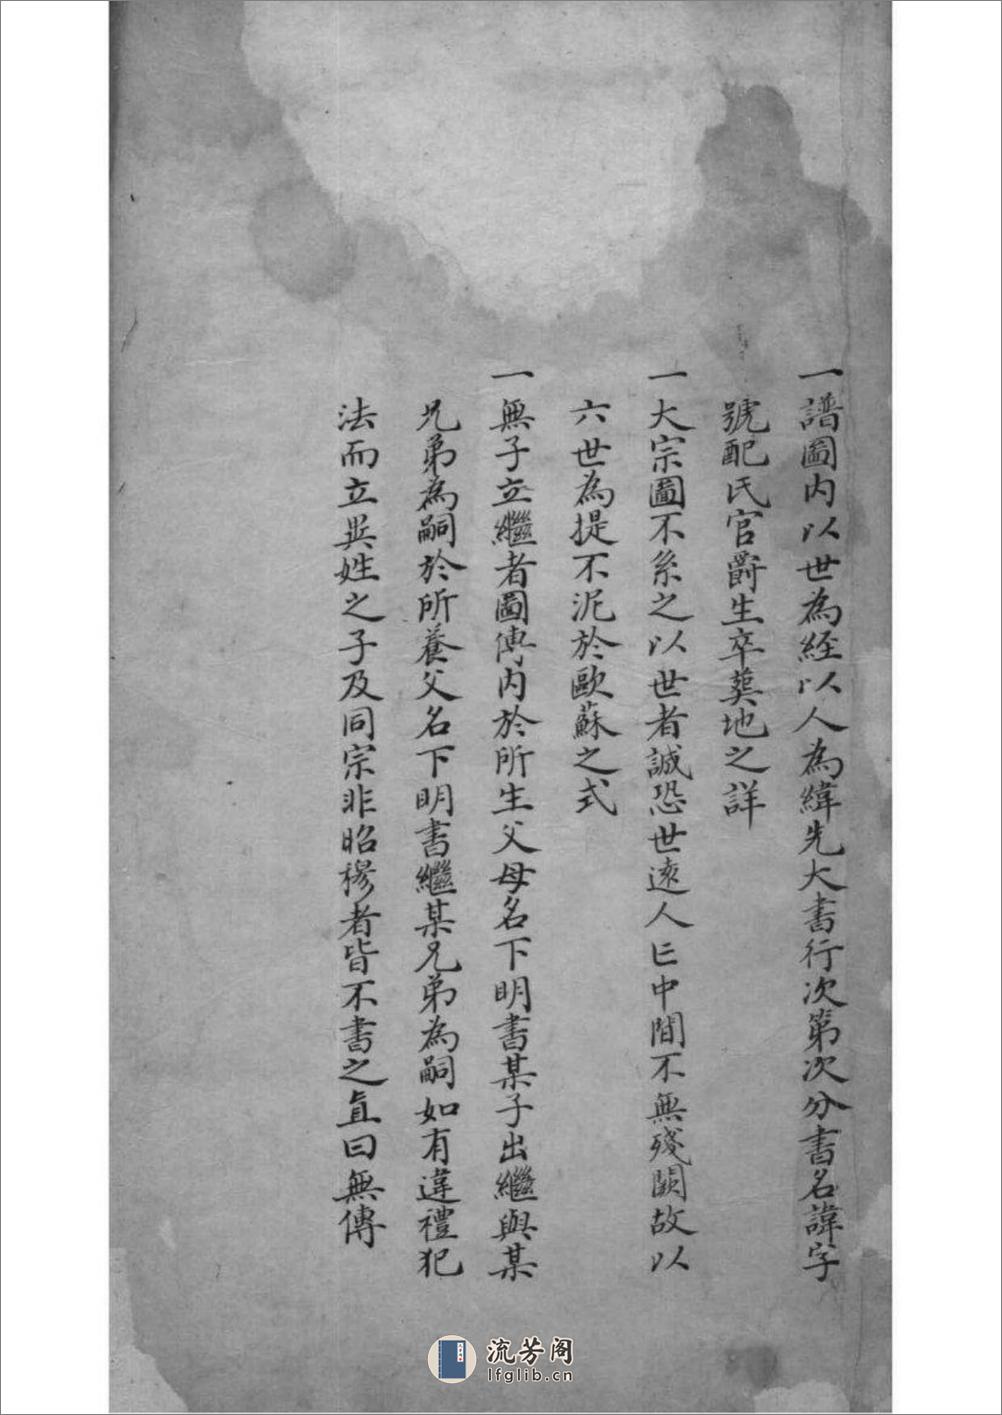 一譜圖内以世為經以人為緯先大書行次第次分書名諱字
號配氏官爵生卒葬地之詳
一大宗圖不系之以世者誠恐世遠人亡中間不無殘闕故以
六世為提不泥於歐蘇之式
一無子立繼者圖傳内於所生父母名下明書某子出繼與某
兄弟為嗣於所養父名下明書繼某兄弟為嗣如有違禮犯
法而立異姓之子及同宗非昭穆者皆不書之直曰無傳
流芳阁
lfglib.cn